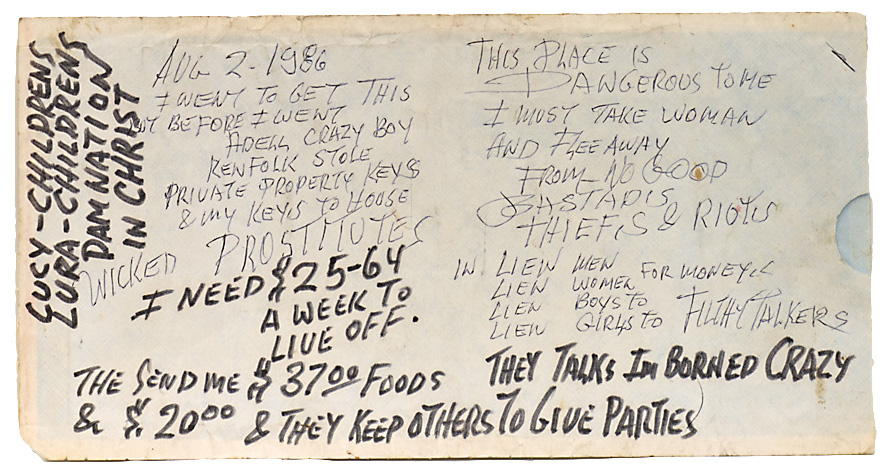 LUCY-CHILDRENS
LURA-CHILDRENS
DAMNATION
IN CHRIST
AUG 2-1986
I WENT TO GET THIS
BUT BEFORE I WENT
ADELL CRAZY BOY
KENFOLK STOLE
PRIVATE PROPERTY KEYS
& MY KEYS TO HOUSE
WICKED PROSTITUTES
I NEED $25-64
A WEEK TO
LIVE OFF.
THE SEND ME $3700 FOODS
& $2000 & THEY KEEP OTHERS TO GIVE PARTIES
THIS PLACE IS
DANGEROUS TO ME
I MUST TAKE WOMAN
AND FLEE AWAY
FROM NO GOOD
BASTARDS
THIEFS & RIOTS
IN LIEN MEN
LIEN WOMEN FOR MONEY &
LIEN BOYS TO
LIEN GIRLS TO FILTHY TALKERS
THEY TALKS IM BORNED CRAZY